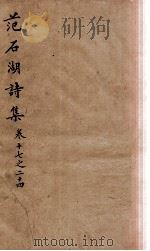 范石湖詩集
卷十七之二十四
mtoou.info